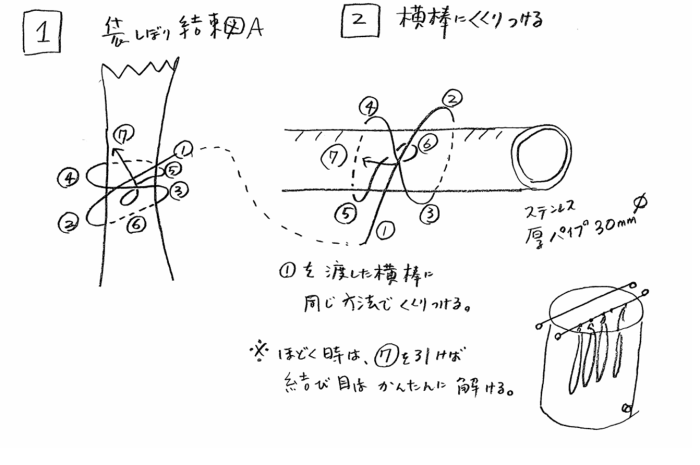 1 袋しぼり 結束図A
⑦
①
④
⑤
③
②
⑥
2 横棒にくくりつける
④
②
⑥
⑦
⑤
③
①
ステンレス
厚パイプ30mmφ
①を渡した横棒に
同じ方法でくくりつける。
※ほどく時は、⑦を引けば
結び目はかんたんに解ける。